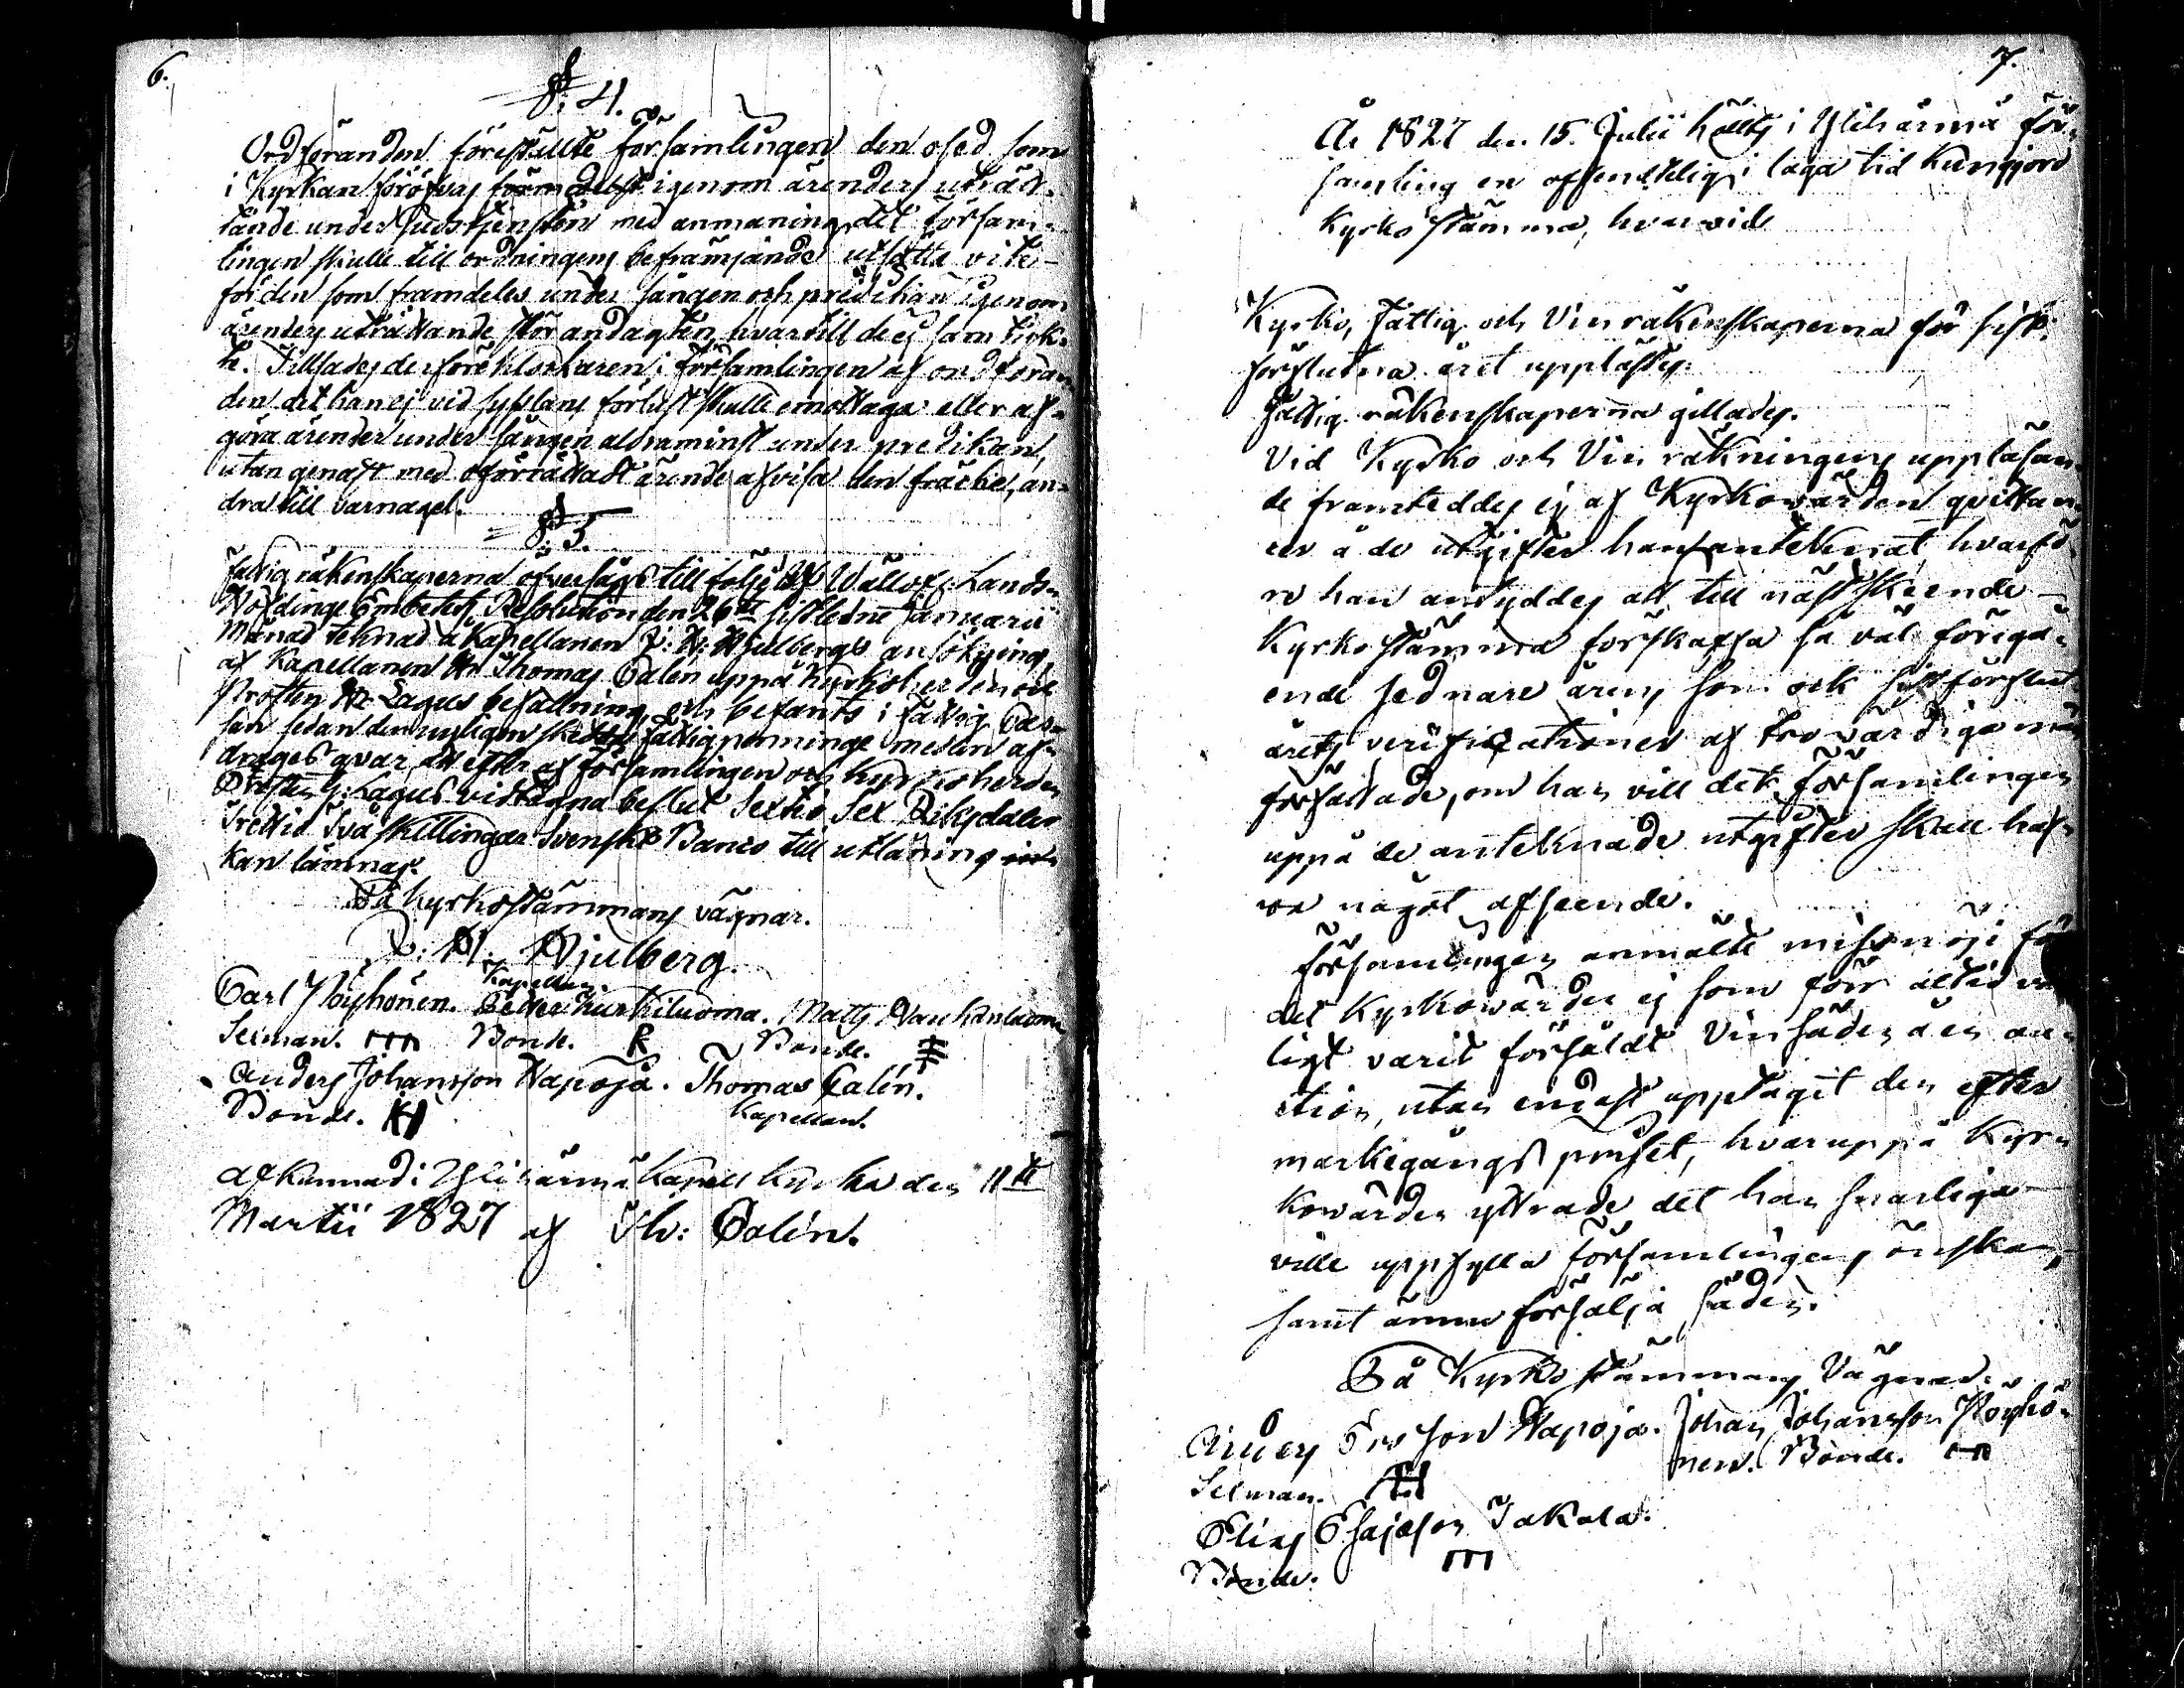 6.
§. 4.
Ordföranden förestälte församlingen den osed som
i Kyrkan föröfvas igenom ärenders uträt-
tande under Gudstjensten med anmaning det försam-
lingen skulle till ordningens befrämjande utsätta vite
för den som framdeles under sången och predikan igenom
ärenders uträttande stör andagten, hvartill de ej samtyck-
te. Tillsades derföre klockaren i församlingen af ordföran-
den det han ej vid sysslans förlust skulle emottaga eller af-
göra ärender under sången aldraminst under predikan,
utan genast med oförrättadt ärende afvisa den fräcke, an-
dra till varnagel.
§. 5.
Fattig räkenskaperna öfversågs till följe af Wällofl. Lands-
Höfdinge Embetets Resolution den 26te sistledne Januarii
Månad teknad å Kapellanen J: H: Hjulbergs ansökning,
af Kapellanen Hr Thomas Calén uppå Kyrkoherden och
Prosten Hr Lagus befallning, och befants i fattig Cas-
san sedan den nyligen skedde fattigpenninge medlen af-
drages qvar, att efter af församlingen och Kyrkoherden
Prosten Lagus vidtagna beslut Sextio Sex Riksdaler
Trettio Två skillingar Svenskt Banco till utlåning
kan lämnas.
På Kyrkostämmans vägnar.
J: H. Hjulberg.
Kapellan.
Carl Pöyhönen. Petter Kurkiluoma. Matts Vanhanluoma
Sexman. m Bonde. R Bonde.
Anders Johansson Napoja. Thomas Calén.
Bonde. Kapellan.
Afkunnad i Ylihärmä Kapell kyrka den 11te
Martii 1827 af Th: Calén.
7.
År 1827 den 15. Julii hölts i Ylihärmä för-
samling en offentelig i laga tid kungjord
Kyrkostämma, hvarvid
Kyrko, Fattig och Vin räkenskaperna för sist-
förslutna året upplästes.
Fattig räkenskaperna gillades.
Vid Kyrko och Vin räkningens uppläsan-
de framteddes ej af Kyrkovärden qvittan-
cer å de utgifter han antecknat, hvarfö-
re han antyddes att till nästskeende
Kyrkostämma förskaffa så väl föregå-
ende sednare årens, som ock sist förslut.
årets verificationer af trovärdiga män
författade, om han vill det församlingen
uppå de anteknade utgifter skall haf-
va något afseende.
Församlingen anmälte missnöje för
det Kyrkovärden ej som förr altid va
ligt varit försåldt Vin säden å en au-
ction, utan endast upptagit den efter
markegångs priset, hvaruppå Kyr-
kovärden yttrade det han
ville uppfylla församlingens önskan,
samt ännu försälja säden.
På Kyrko stämmans Vägnar.
Anders Ersson Napoja. Johan Johansson Pöyhö-
Sexman. nen. Bonde. m
Elias Esajeson Jakola.
Bonde. m